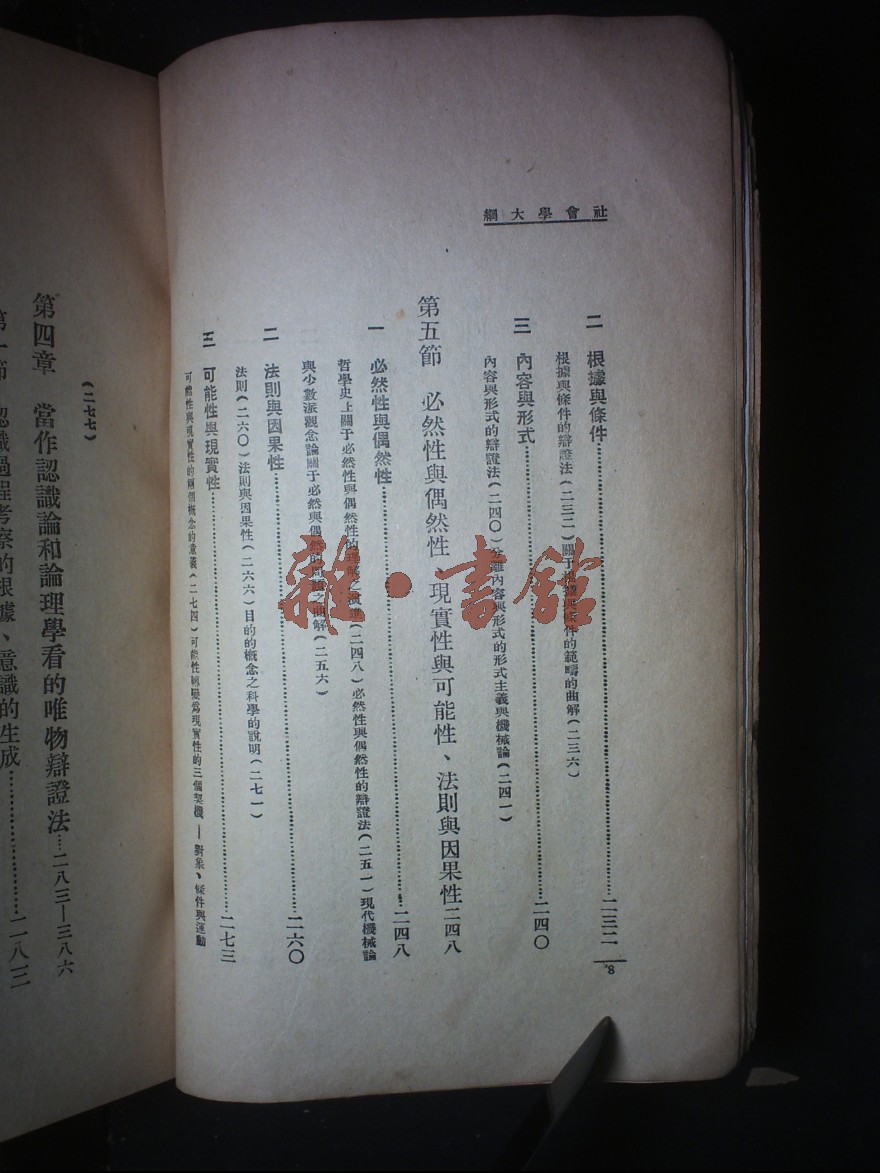 社會學大綱
二 根據與條件……二三二
根據與條件的辯證法(二三二)關于根據與條件的範疇的曲解(二三六)
三 內容與形式……二四〇
內容與形式的辯證法(二四〇)分離內容與形式的形式主義與機械論(二四一)
第五節 必然性與偶然性、現實性與可能性、法則與因果性二四八
一 必然性與偶然性……二四八
哲學史上關于必然性與偶然性的理解之(二四八)必然性與偶然性的辯證法(二五一)現代機械論
與少數派觀念論關于必然與偶然的問題之曲解(二五六)
二 法則與因果性……二六〇
法則(二六〇)法則與因果性(二六六)目的的概念之科學的說明(二七一)
三 可能性與現實性……二七三
可能性與現實性的兩個概念的意義(二七四)可能性轉變爲現實性的三個契機——對象、條件與運動
8
(二七七)
第四章 當作認識論和論理學看的唯物辯證法…二八三—三八六
第一節 認識過程考察的根據、意識的生成……二八三
雜·書館